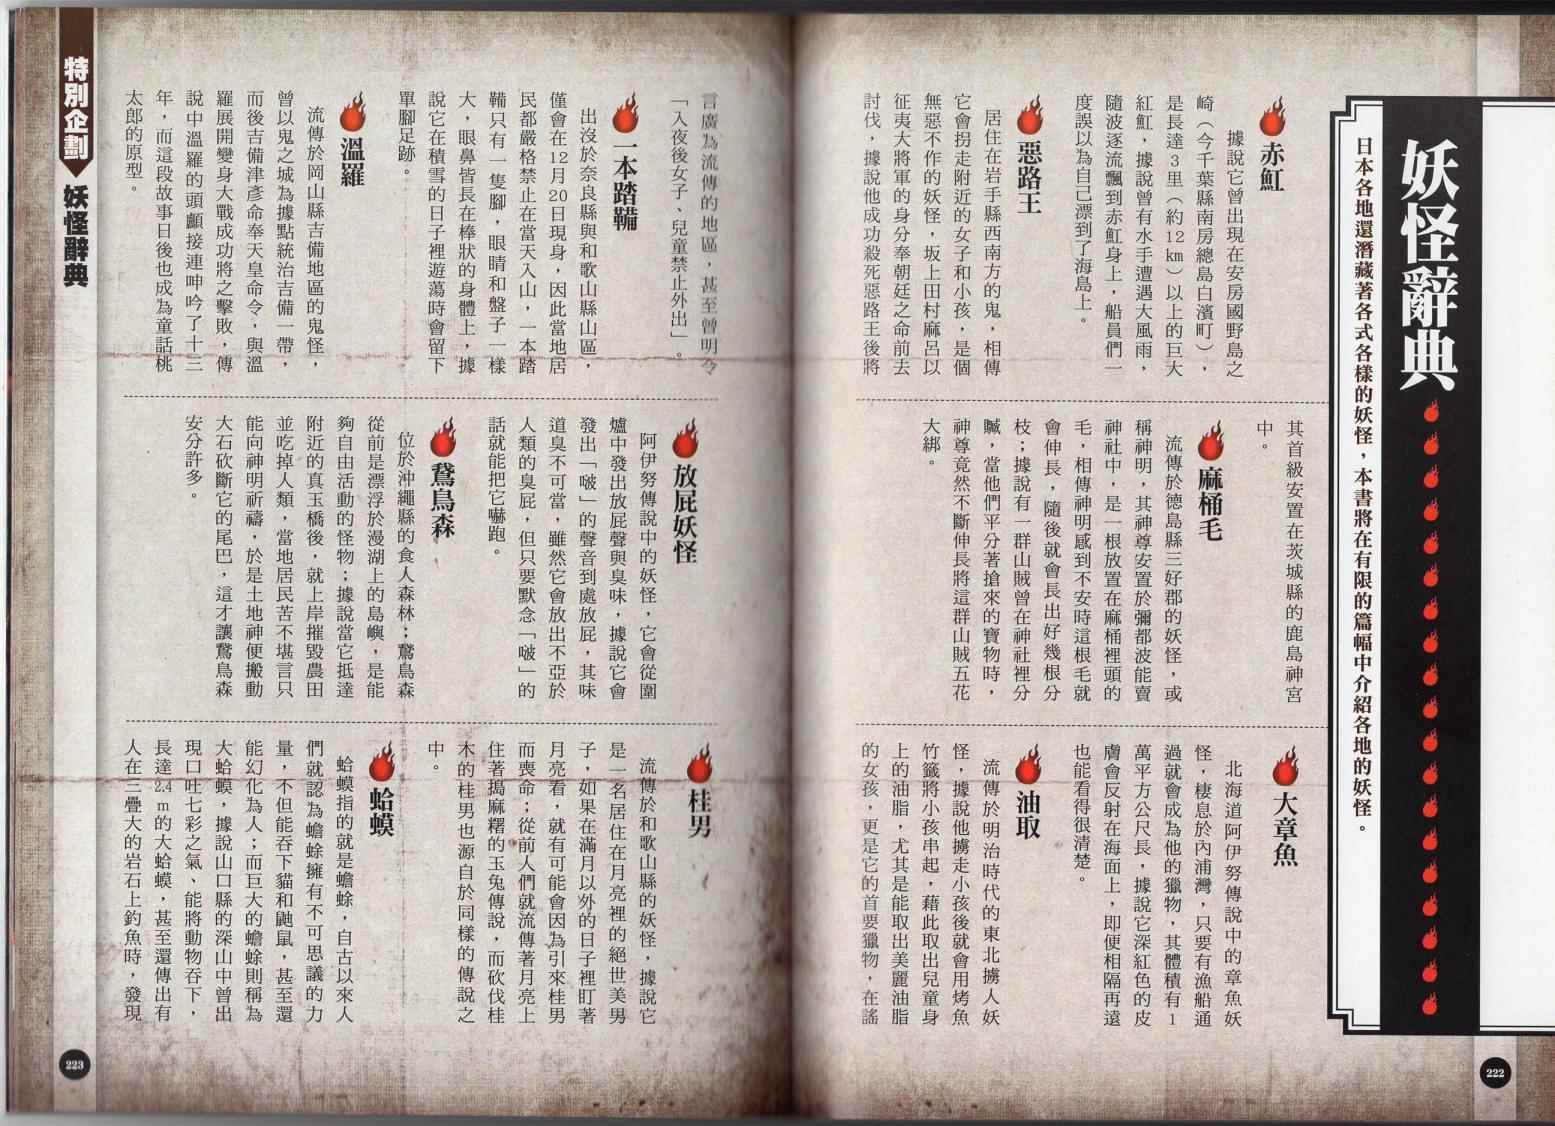 妖怪辭典
日本各地還潛藏著各式各樣的妖怪，本書將在有限的篇幅中介紹各地的妖怪。
赤魟
據說它曾出現在安房國野島之
崎（今千葉縣南房總島白濱町），
是長達3里（約12km）以上的巨大
紅魟，據說曾有水手遭遇大風雨，
隨波逐流飄到赤魟身上，船員們一
度誤以為自己漂到了海島上。
惡路王
居住在岩手縣西南方的鬼，相傳
它會拐走附近的女子和小孩，是個
無惡不作的妖怪，坂上田村麻呂以
征夷大將軍的身分奉朝廷之命前去
討伐，據說他成功殺死惡路王後將
其首級安置在茨城縣的鹿島神宮
中。
麻桶毛
流傳於德島縣三好郡的妖怪，或
稱神明，其神尊安置於彌都波能賣
神社中，是一根放置在麻桶裡頭的
毛，相傳神明感到不安時這根毛就
會伸長，隨後就會長出好幾根分
枝；據說有一群山賊曾在神社裡分
贓，當他們平分著搶來的寶物時，
神尊竟然不斷伸長將這群山賊五花
大綁。
大章魚
北海道阿伊努傳說中的章魚妖
怪，棲息於內浦灣，只要有漁船通
過就會成為他的獵物，其體積有1
萬平方公尺長，據說它深紅色的皮
膚會反射在海面上，即便相隔再遠
也能看得很清楚。
油取
流傳於明治時代的東北擄人妖
怪，據說他擄走小孩後就會用烤魚
竹籤將小孩串起，藉此取出兒童身
上的油脂，尤其是能取出美麗油脂
的女孩，更是它的首要獵物，在謠
222
言廣為流傳的地區，甚至曾明令
「入夜後女子、兒童禁止外出」。
一本踏鞴
出沒於奈良縣與和歌山縣山區，
僅會在12月20日現身，因此當地居
民都嚴格禁止在當天入山，一本踏
鞴只有一隻腳，眼睛和盤子一樣
大，眼鼻皆長在棒狀的身體上，據
說它在積雪的日子裡遊蕩時會留下
單腳足跡。
溫羅
流傳於岡山縣吉備地區的鬼怪，
曾以鬼之城為據點統治吉備一帶，
而後吉備津彥命奉天皇命令，與溫
羅展開變身大戰成功將之擊敗，傳
說中溫羅的頭顱接連呻吟了十三
年，而這段故事日後也成為童話桃
太郎的原型。
放屁妖怪
阿伊努傳說中的妖怪，它會從圍
爐中發出放屁聲與臭味，據說它會
發出「啵」的聲音到處放屁，其味
道臭不可當，雖然它會放出不亞於
人類的臭屁，但只要默念「啵」的
話就能把它嚇跑。
鵟鳥森
位於沖繩縣的食人森林；鵟鳥森
從前是漂浮於漫湖上的島嶼，是能
夠自由活動的怪物；據說當它抵達
附近的真玉橋後，就上岸摧毀農田
並吃掉人類，當地居民苦不堪言只
能向神明祈禱，於是土地神便搬動
大石砍斷它的尾巴，這才讓鵟鳥森
安分許多。
桂男
流傳於和歌山縣的妖怪，據說它
是一名居住在月亮裡的絕世美男
子，如果在滿月以外的日子裡盯著
月亮看，就有可能會因為引來桂男
而喪命；從前人們就流傳著月亮上
住著搗麻糬的玉兔傳說，而砍伐桂
木的桂男也源自於同樣的傳說之
中。
蛤蟆
蛤蟆指的就是蟾蜍，自古以來人
們就認為蟾蜍擁有不可思議的力
量，不但能吞下貓和鼬鼠，甚至還
能幻化為人；而巨大的蟾蜍則稱為
大蛤蟆，據說山口縣的深山中曾出
現口吐七彩之氣、能將動物吞下，
長達2.4m的大蛤蟆，甚至還傳出有
人在三疊大的岩石上釣魚時，發現
特別企劃
妖怪辭典
223